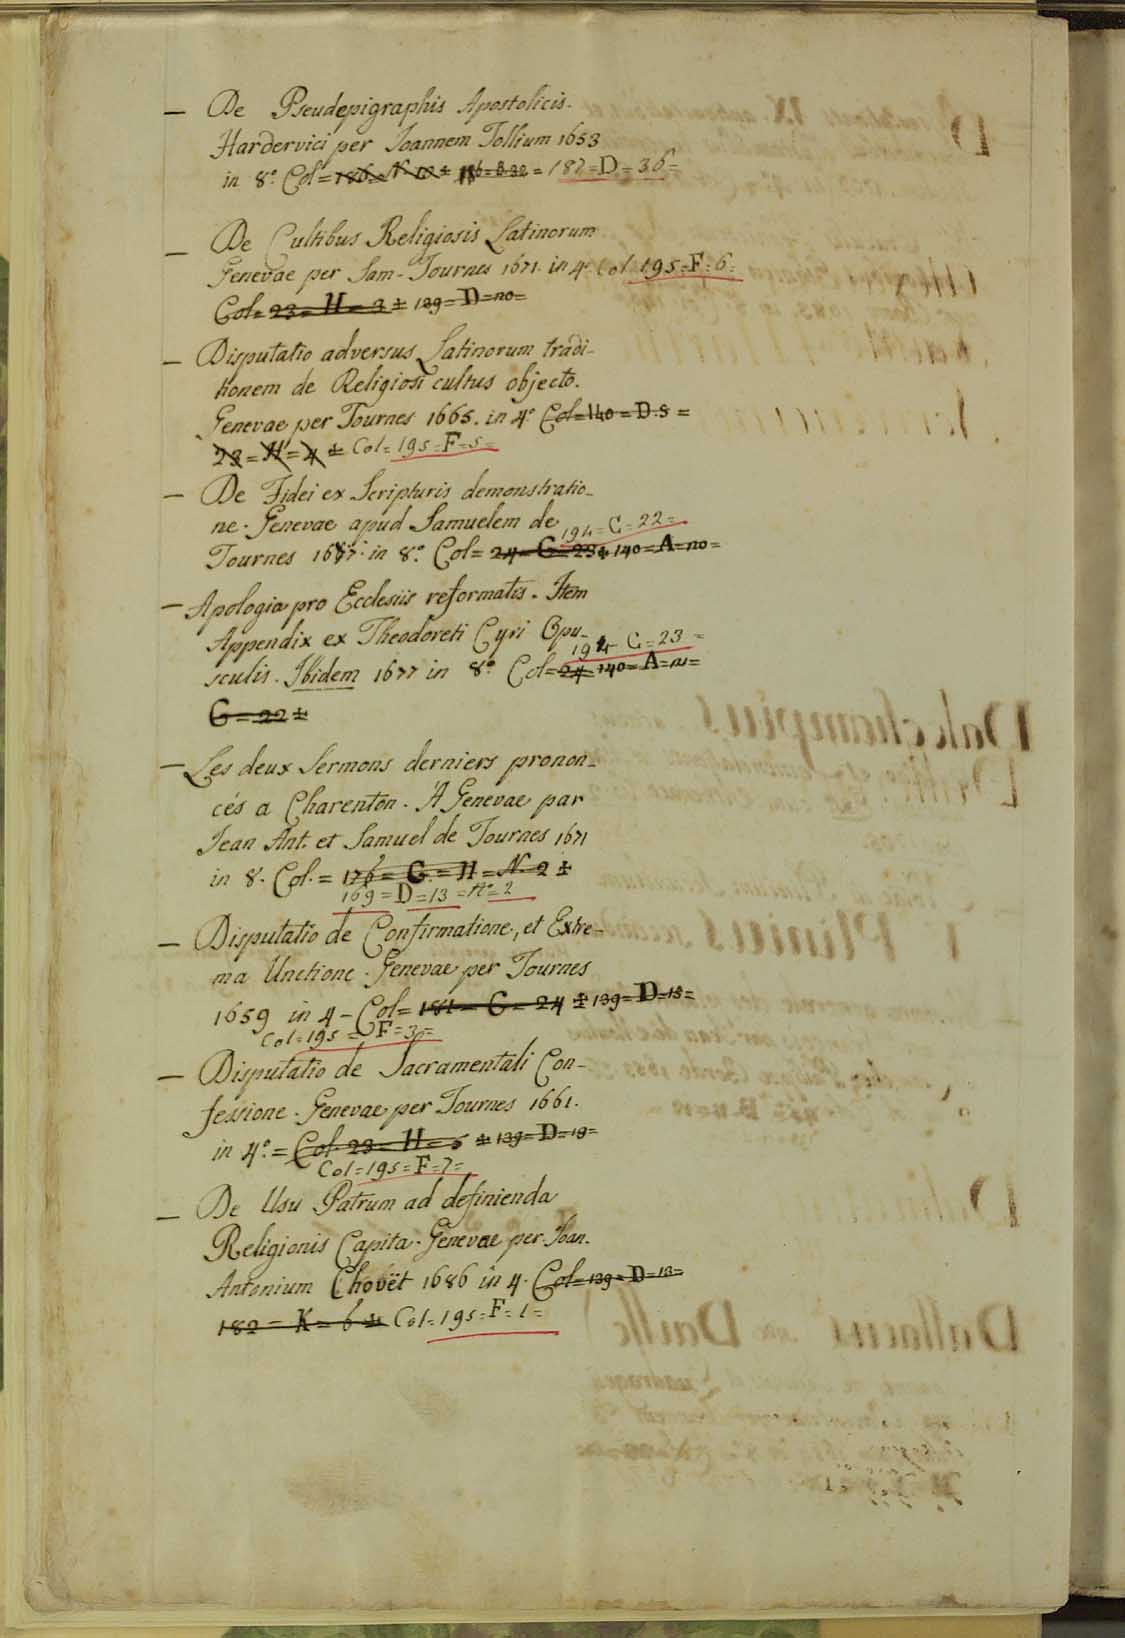 — De Pseudepigraphis Apostolicis.
Hardervici per Joannem Tollium 1653
in 8.° Col= = 182=D=36=
— De Cultibus Religiosis Latinorum
Genevae per Sam- Tournes 1671. in 4.° Col 195=F=6=
Col= 23=H=3 ± 139=D=no=
— Disputatio adversus Latinorum tradi-
tionem de Religiosi cultus objecto.
Genevae per Tournes 1665. in 4.° Col=140=D.5 =
23=H=4 ± Col=195=F=5=
— De Fidei ex Scripturis demonstratio-
ne. Genevae apud Samuelem de
194=G=22=
Tournes in 8.° Col= 24=G=23± 140=A=no=
— Apologia pro Ecclesiis reformatis. Item
Appendix ex Theodoreti Cyri Opu-
194 G=23 =
sculis. Ibidem 1677 in 8.° Col=24= 140=A=
G=22 ±
— Les deux Sermons derniers pronon-
cés a Charenton. A Genevae par
Jean Ant. et Samuel de Tournes 1671
in 8. Col.= 176= G=H=N.2 ±
169=D=13=N.°=2
— Disputatio de Confirmatione, et Extre-
ma Unctione. Genevae per Tournes
1659 in 4- Col= 181=G=24 ± 139=D=15=
Col=195=F=3=
— Disputatio de Sacramentali Con-
fessione. Genevae per Tournes 1661.
in 4.°= Col. 23=H=5 ± 139=D=19=
Col=195=F=7=
— De Usu Patrum ad definienda
Religionis Capita. Genevae per Joan.
Antonium Chobët 1686 in 4. Col=139=D=13=
182=K=6± Col=195=F=1=